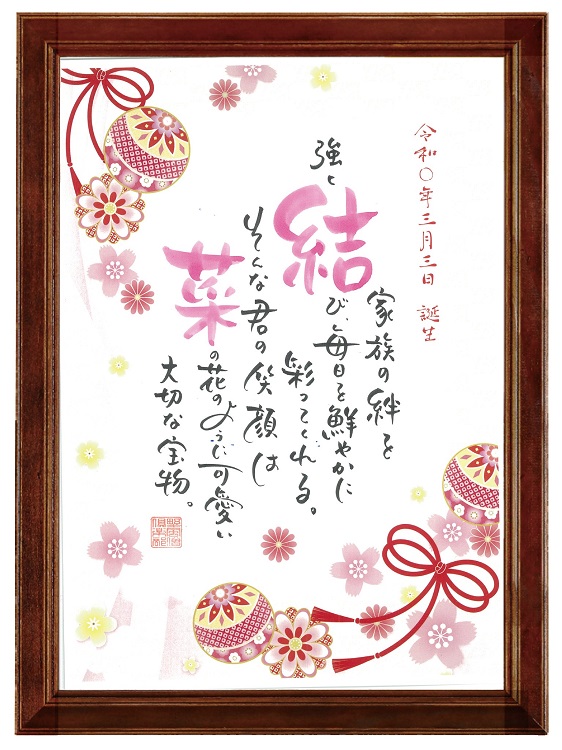 令和〇年三月三日 誕生
家族の絆を
強く結び、毎日を鮮やかに
彩ってくれる。
そんな君の笑顔は
菜の花のように可愛い
大切な宝物。